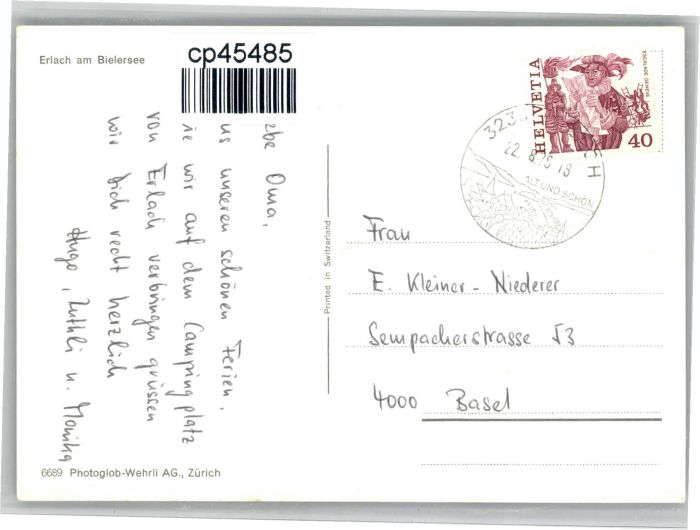 Erlach am Bielersee
cp45485
be Oma,
us unseren schönen Ferien,
ie wir auf dem Campingplatz
von Erlach verbringen grüssen
wir Dich recht herzlich
Hugo, Ruthli u. Monika
Printed in Switzerland
6689 Photoglob-Wehrli AG., Zürich
HELVETIA
ESCALADE GENÈVE
40
323
CH
ALT UND SCHÖN
Frau
E. Kleiner-Niederer
Sempacherstrasse 53
4000 Basel